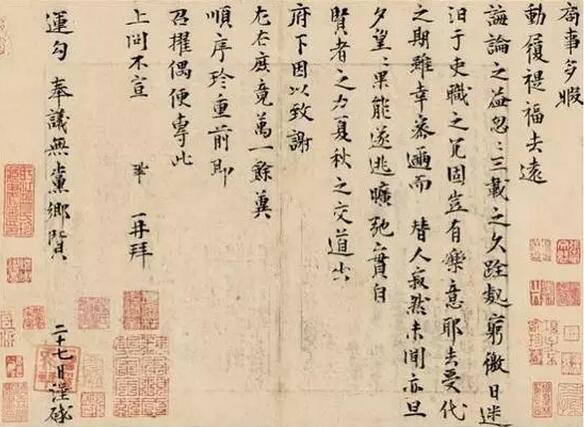 局事多暇
動履禔福去遠
誨論之益忽〻三載之久跧處窮徼日迷
汨于吏職之冗固豈有樂意耶去受代
之期雖幸密邇而替人寂然未聞亦旦
夕望〻果能遂逃曠弛實自
賢者之力夏秋之交道出
府下因以致謝
左右庶竟萬一餘冀
順序珍重前即
召擢偶便專此
上問不宣 鞏 再拜
運勾 奉議無黨鄉賢 二十七日謹啟